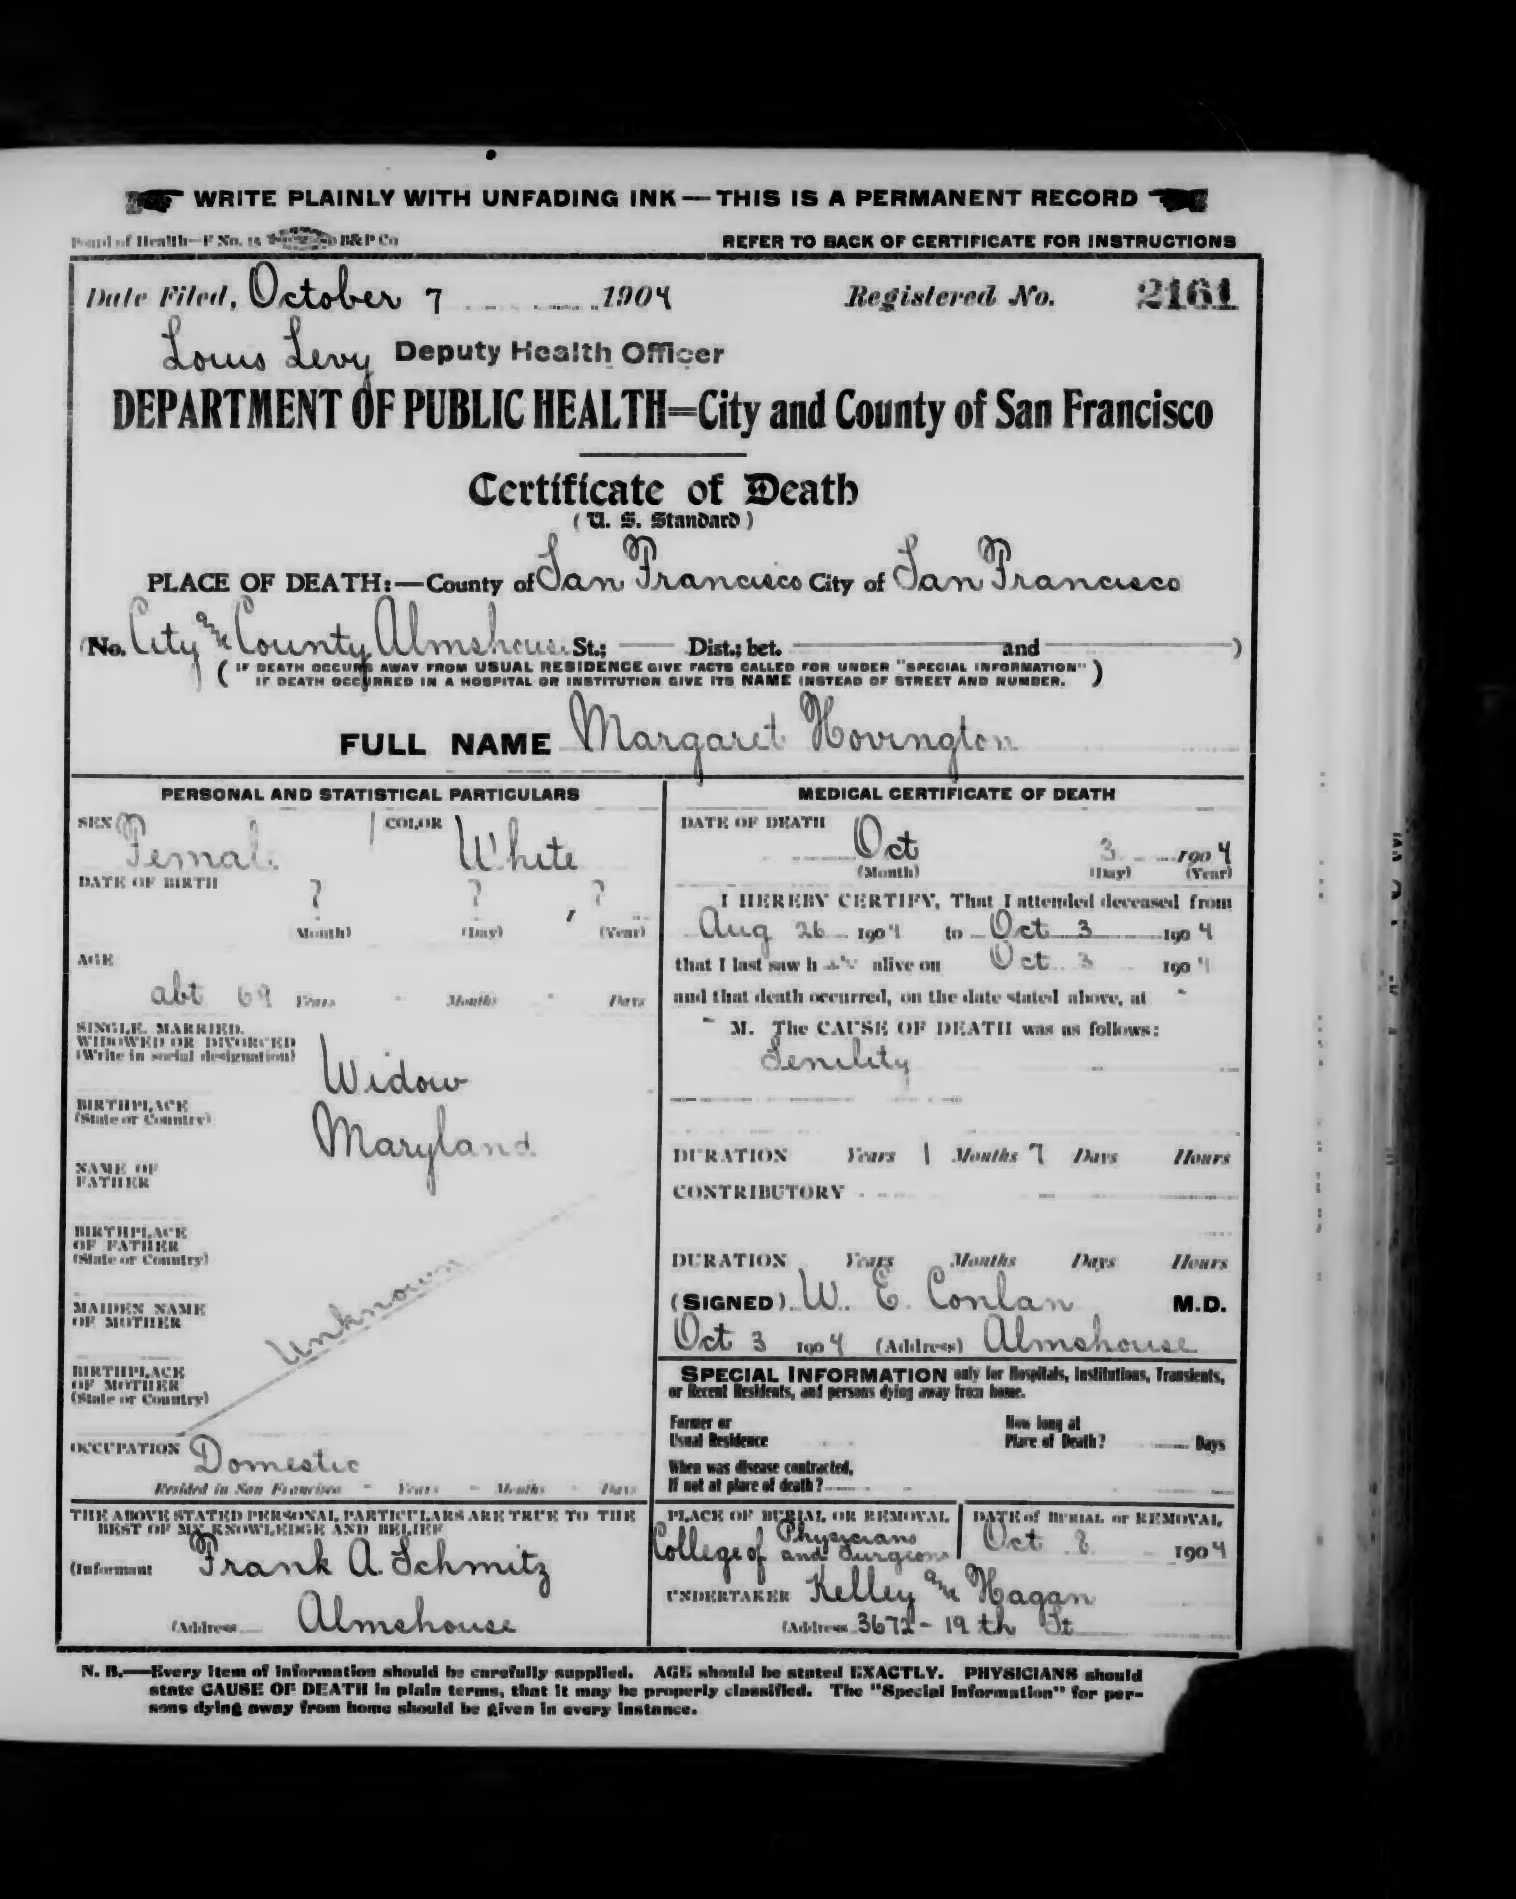 WRITE PLAINLY WITH UNFADING INK — THIS IS A PERMANENT RECORD
Board of Health—F No. 15 B&P Co
REFER TO BACK OF CERTIFICATE FOR INSTRUCTIONS
Date Filed, October 7 1904 Registered No. 2161
Louis Levy Deputy Health Officer
DEPARTMENT OF PUBLIC HEALTH=City and County of San Francisco
Certificate of Death
(U. S. Standard)
PLACE OF DEATH:—County of San Francisco City of San Francisco
(No. City and County Almshouse St.; Dist.; bet. and )
( IF DEATH OCCURS AWAY FROM USUAL RESIDENCE GIVE FACTS CALLED FOR UNDER "SPECIAL INFORMATION" )
IF DEATH OCCURRED IN A HOSPITAL OR INSTITUTION GIVE ITS NAME INSTEAD OF STREET AND NUMBER.
FULL NAME Margaret Hovington
PERSONAL AND STATISTICAL PARTICULARS
SEX Female COLOR White
DATE OF BIRTH ? ? , ?
(Month) (Day) (Year)
AGE
abt 69 Years - Months - Days
SINGLE, MARRIED,
WIDOWED OR DIVORCED
(Write in social designation)
Widow
BIRTHPLACE
(State or Country)
Maryland
NAME OF
FATHER
BIRTHPLACE
OF FATHER
(State or Country)
Unknown
MAIDEN NAME
OF MOTHER
BIRTHPLACE
OF MOTHER
(State or Country)
OCCUPATION Domestic
Resided in San Francisco - Years - Months - Days
THE ABOVE STATED PERSONAL PARTICULARS ARE TRUE TO THE
BEST OF MY KNOWLEDGE AND BELIEF
(Informant Frank A. Schmitz
(Address Almshouse
MEDICAL CERTIFICATE OF DEATH
DATE OF DEATH
Oct 3 1904
(Month) (Day) (Year)
I HEREBY CERTIFY, That I attended deceased from
Aug 26 1904 to Oct 3 1904
that I last saw h er alive on Oct 3 1904
and that death occurred, on the date stated above, at -
- M. The CAUSE OF DEATH was as follows:
Senility
DURATION Years 1 Months 7 Days Hours
CONTRIBUTORY
DURATION Years Months Days Hours
(SIGNED) W. E. Conlan M.D.
Oct 3 1904 (Address) Almshouse
SPECIAL INFORMATION only for Hospitals, Institutions, Transients,
or Recent Residents, and persons dying away from home.
Former or
Usual Residence
How long at
Place of Death? Days
When was disease contracted,
If not at place of death?
PLACE OF BURIAL OR REMOVAL
College of Physicians
and Surgeons
DATE of BURIAL or REMOVAL
Oct 8 1904
UNDERTAKER Kelley and Hagan
(Address 3672 - 19th St
N. B.—Every item of information should be carefully supplied. AGE should be stated EXACTLY. PHYSICIANS should
state CAUSE OF DEATH in plain terms, that it may be properly classified. The "Special Information" for per-
sons dying away from home should be given in every instance.